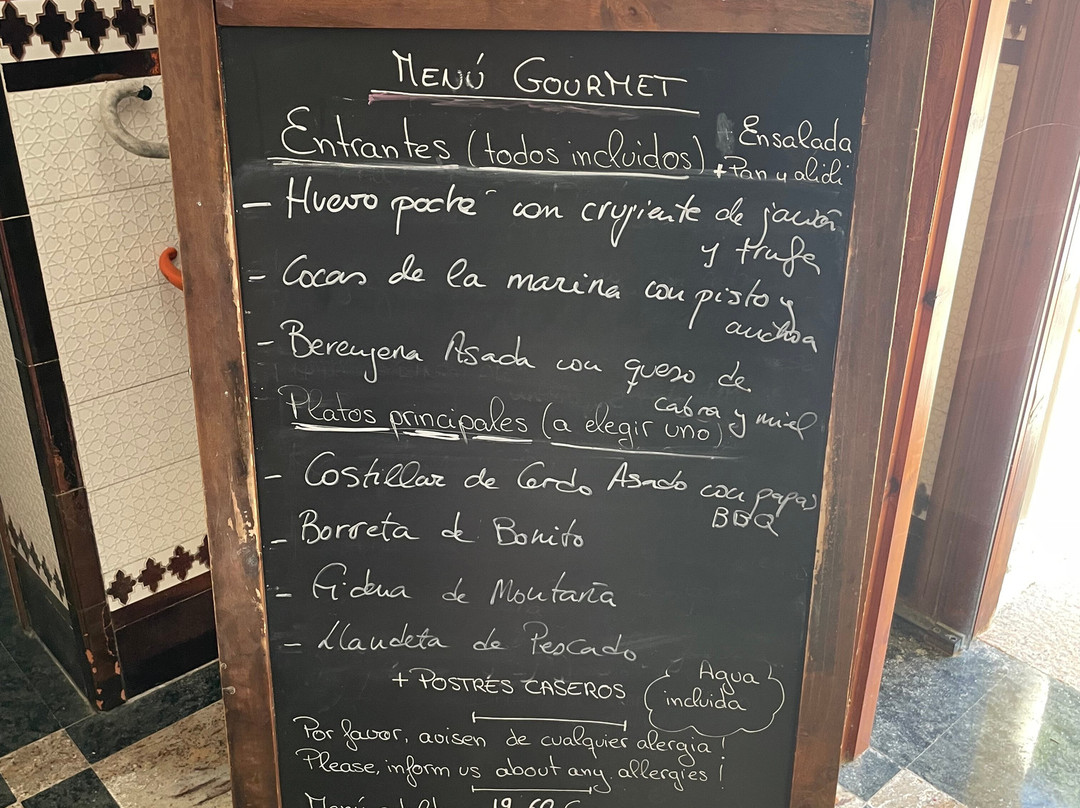 MENÚ GOURMET
Entrantes (todos incluidos) + Ensalada
+ Pan y alioli
- Huevo poché con crujiente de jamón
y trufa
- Cocas de la marina con pisto y
anchoa
- Berenjena Asada con queso de
cabra y miel
Platos principales (a elegir uno)
- Costillar de Cerdo Asado con papas
BBQ
- Borreta de Bonito
- Fideua de Montaña
- Llandeta de Pescado
+ POSTRES CASEROS
Agua
incluida
Por favor, avisen de cualquier alergia!
Please, inform us about any allergies!